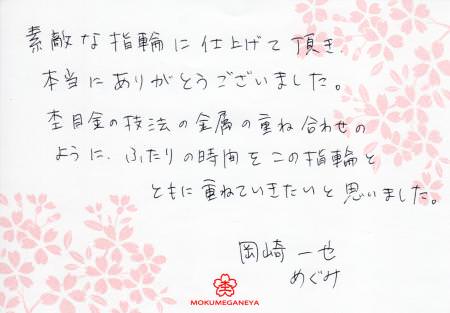 素敵な指輪に仕上げて頂き、
本当にありがとうございました。
杢目金の技法の金属の重ね合わせの
ように、ふたりの時間をこの指輪と
ともに重ねていきたいと思いました。
岡崎 一也
めぐみ
杢
MOKUMEGANEYA